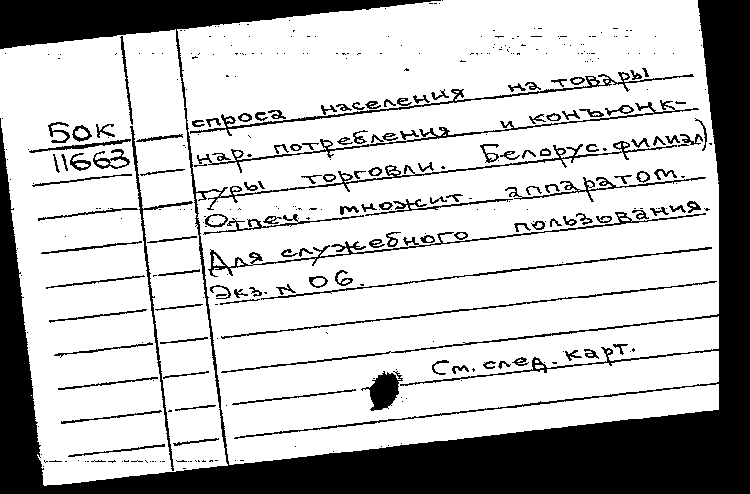 спроса населения на товары
Бок
нар. потребления и конъюнк-
11663
туры торговли. Белорус. филиал).
Отпеч. множит. аппаратом.
Для служебного пользования.
Экз. N 06.
См. след. карт.